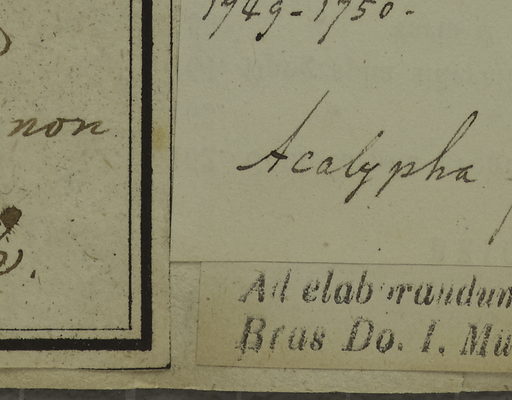 non
1749-1750.
Acalypha
Ad elaborandum
Bras Do. I. Mu